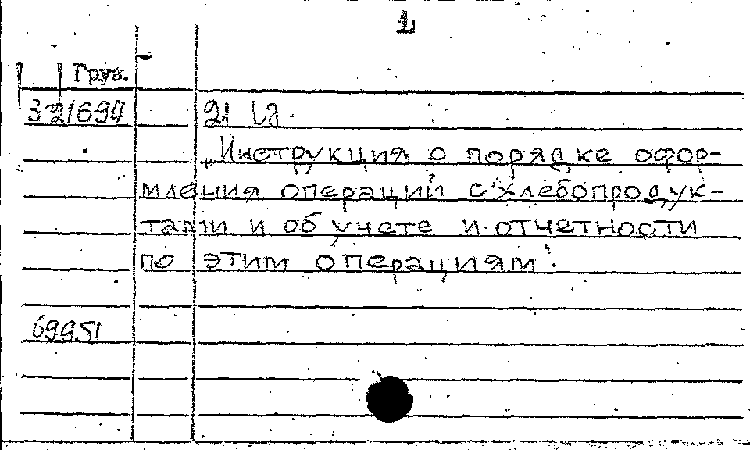 1
Груз.
321694
Инструкция о порядке офор-
мления операций с хлебопродук-
тами и об учете и отчетности
по этим операциям.
69951